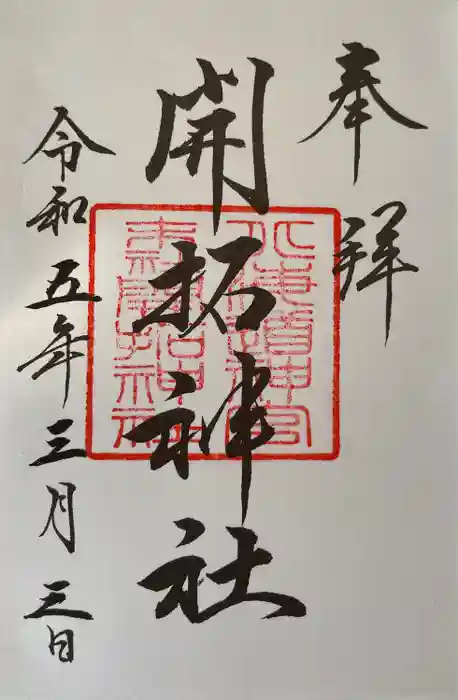 奉拝
開拓神社
北海道神宮
末社開拓神社
令和五年三月三日